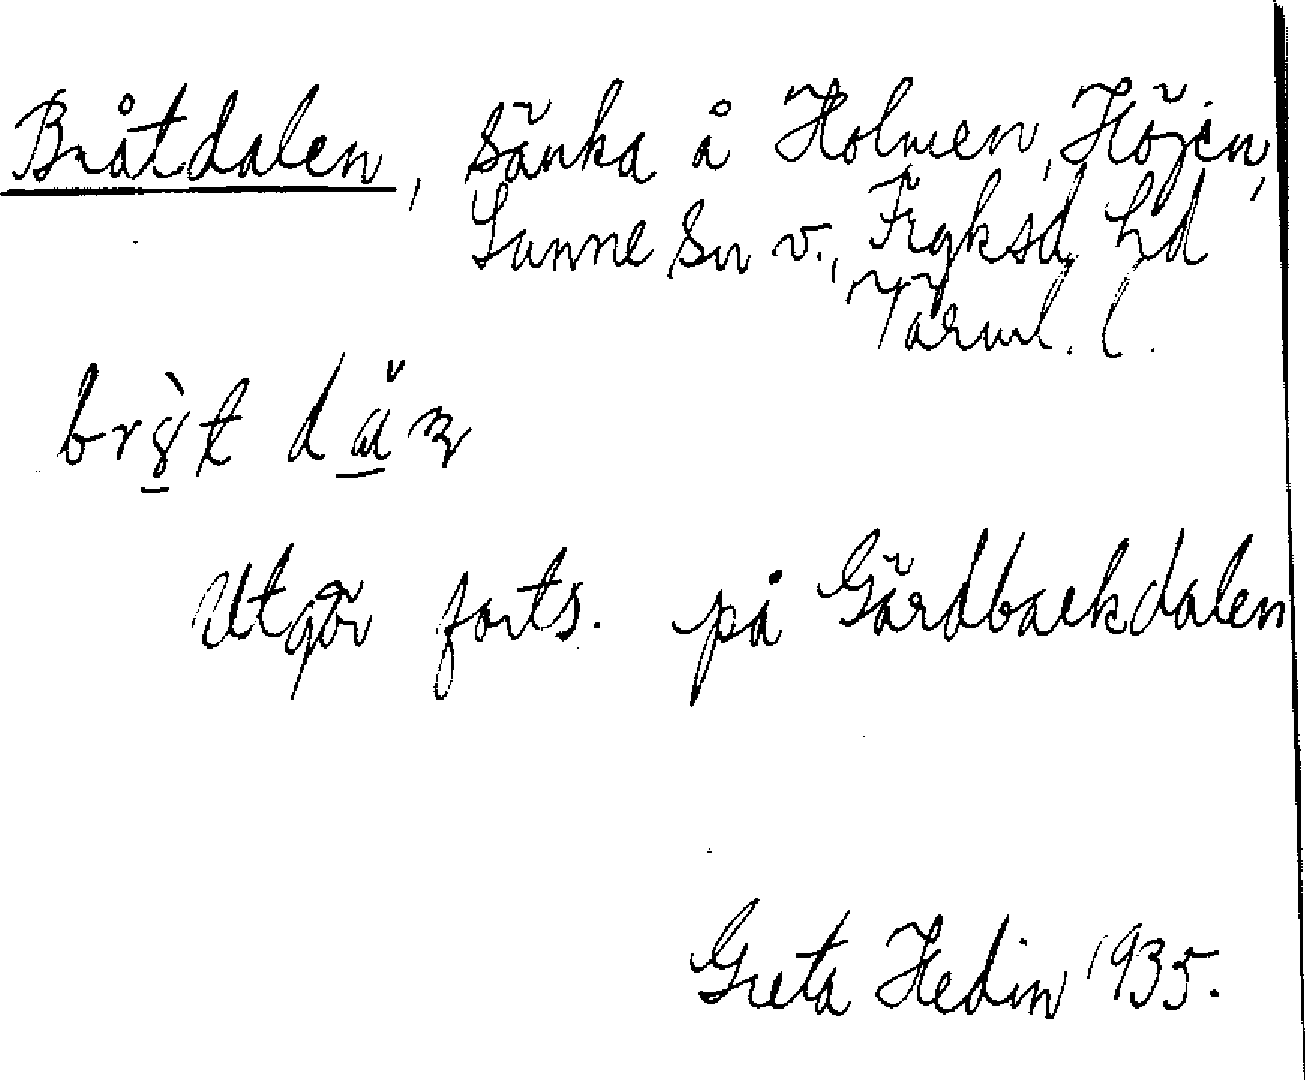 Bråtdalen, Sänka å Holmen, Höjen,
Sunne sn v., Fryksd. hd
Värml. l.
Utgör forts. på Gärdbackdalen
Greta Hedin 1935.